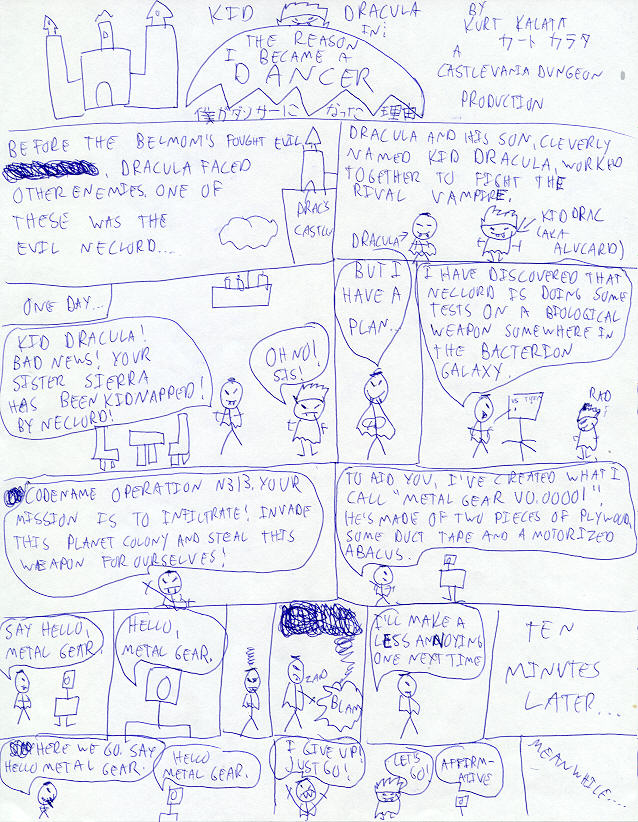 KID DRACULA
IN:
THE REASON
I BECAME A
DANCER
僕がダンサーになった理由
BY
KURT KALATA
カート カラタ
A
CASTLEVANIA DUNGEON
PRODUCTION
BEFORE THE BELMONT'S FOUGHT EVIL
, DRACULA FACED
OTHER ENEMIES. ONE OF
THESE WAS THE
EVIL NECLORD...
DRAC'S
CASTLE
DRACULA AND HIS SON, CLEVERLY
NAMED KID DRACULA, WORKED
TOGETHER TO FIGHT THE
RIVAL VAMPIRE.
DRACULA
KID DRAC
(AKA
ALUCARD)
ONE DAY...
KID DRACULA!
BAD NEWS! YOUR
SISTER SIERRA
HAS BEEN KIDNAPPED!
BY NECLORD!
OH NO!
SIS!
BUT I
HAVE A
PLAN...
I HAVE DISCOVERED THAT
NECLORD IS DOING SOME
TESTS ON A BIOLOGICAL
WEAPON SOMEWHERE IN
THE BACTERION
GALAXY.
US THEM
RAD!
CODENAME OPERATION N313. YOUR
MISSION IS TO INFILTRATE! INVADE
THIS PLANET COLONY AND STEAL THIS
WEAPON FOR OURSELVES!
TO AID YOU, I'VE CREATED WHAT I
CALL "METAL GEAR V0.00001"!
HE'S MADE OF TWO PIECES OF PLYWOOD,
SOME DUCT TAPE AND A MOTORIZED
ABACUS.
SAY HELLO,
METAL GEAR.
HELLO,
METAL GEAR.
ZAP
BLAM
I'LL MAKE A
LESS ANNOYING
ONE NEXT TIME
TEN
MINUTES
LATER...
HERE WE GO. SAY
HELLO METAL GEAR.
HELLO
METAL GEAR.
I GIVE UP!
JUST GO!
LET'S
GO!
AFFIRM-
ATIVE
MEANWHILE....